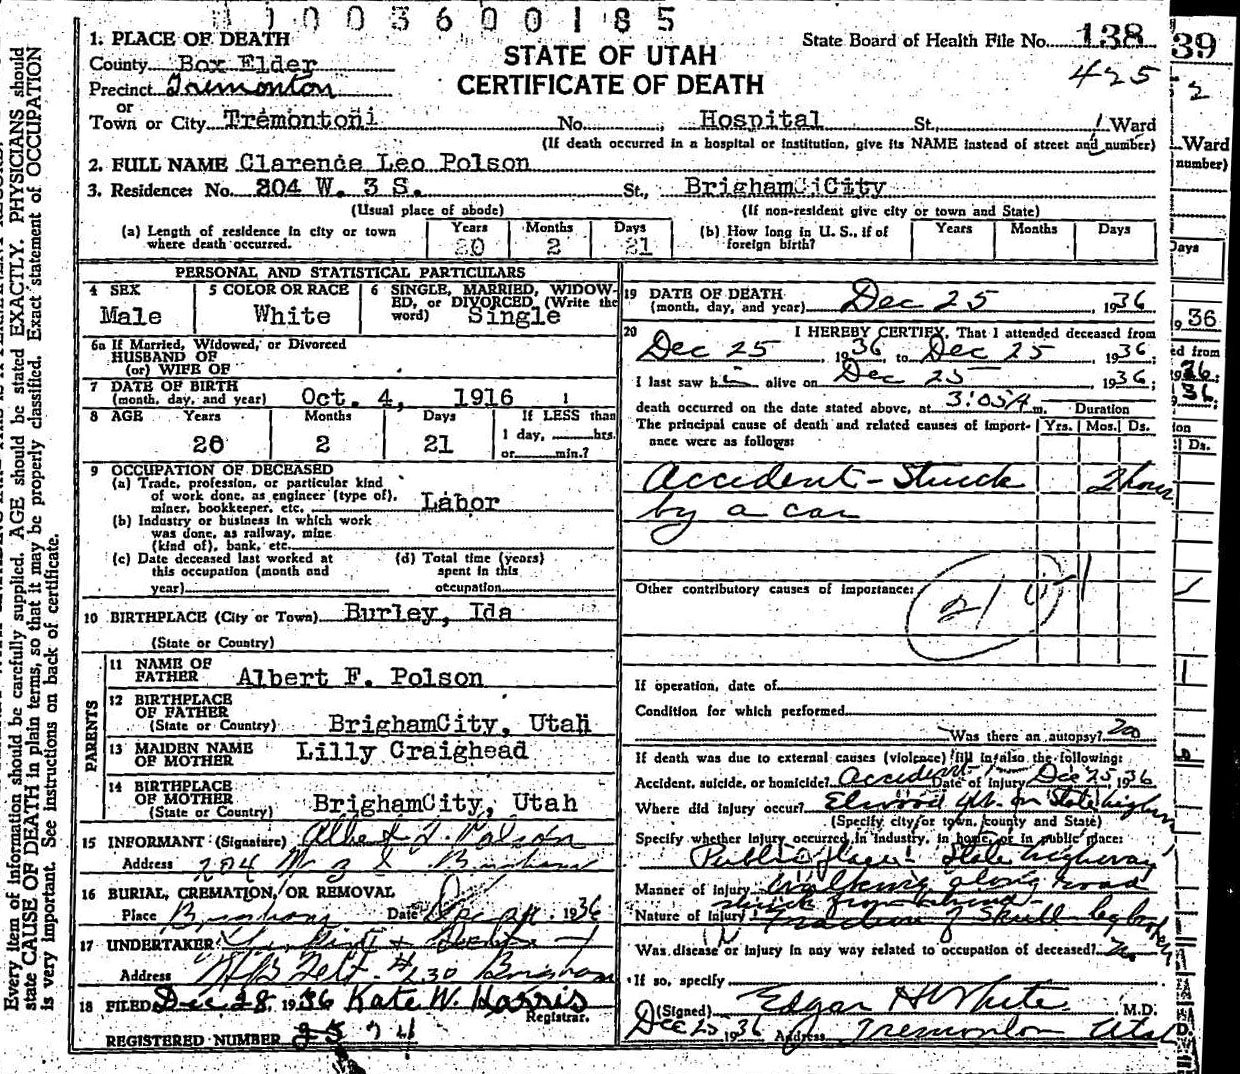 1003600185
1. PLACE OF DEATH
STATE OF UTAH
CERTIFICATE OF DEATH
State Board of Health File No. 138
425
County Box Elder
Precinct Tremonton
or
Town or City Tremontoni No. , Hospital St, 1 Ward
(If death occurred in a hospital or institution, give its NAME instead of street and number)
2. FULL NAME Clarence Leo Polson
3. Residence: No. 204 W. 3 S. St., Brigham City
(Usual place of abode) (If non-resident give city or town and State)
(a) Length of residence in city or town where death occurred. Years 20 Months 2 Days 21
(b) How long in U. S., if of foreign birth? Years Months Days
PERSONAL AND STATISTICAL PARTICULARS
4 SEX Male
5 COLOR OR RACE White
6 SINGLE, MARRIED, WIDOWED, or DIVORCED (Write the word) Single
6a If Married, Widowed, or Divorced
HUSBAND OF
(or) WIFE OF
7 DATE OF BIRTH
(month, day, and year) Oct. 4, 1916
8 AGE Years Months Days If LESS than
20 2 21 1 day, hrs.
or min.?
9 OCCUPATION OF DECEASED
(a) Trade, profession, or particular kind
of work done, as engineer (type of),
miner, bookkeeper, etc. Labor
(b) Industry or business in which work
was done, as railway, mine
(kind of), bank, etc.
(c) Date deceased last worked at
this occupation (month and
year)
(d) Total time (years)
spent in this
occupation
10 BIRTHPLACE (City or Town) Burley, Ida
(State or Country)
PARENTS
11 NAME OF
FATHER Albert F. Polson
12 BIRTHPLACE
OF FATHER
(State or Country) BrighamCity, Utah
13 MAIDEN NAME
OF MOTHER Lilly Craighead
14 BIRTHPLACE
OF MOTHER
(State or Country) BrighamCity, Utah
15 INFORMANT (Signature) Albert F Polson
Address 204 W 3 S Brigham
16 BURIAL, CREMATION, OR REMOVAL
Place Brigham Date Dec 1936
17 UNDERTAKER
Address Brigham
18 FILED Dec 28, 1936 Kate W. Harris
Registrar.
REGISTERED NUMBER 25 74
19 DATE OF DEATH
(month, day, and year) Dec 25, 1936
20 I HEREBY CERTIFY, That I attended deceased from
Dec 25, 1936 to Dec 25, 1936;
I last saw him alive on Dec 25, 1936;
death occurred on the date stated above, at 3:05A m. Duration
The principal cause of death and related causes of importance were as follows: Yrs. Mos. Ds.
Accident - Struck 2 hours
by a car
Other contributory causes of importance:
If operation, date of
Condition for which performed
Was there an autopsy? no
If death was due to external causes (violence) fill in also the following:
Accident, suicide, or homicide? Accident Date of injury Dec 25, 1936
Where did injury occur? Elwood Ut. on State highway
(Specify city or town, county and State)
Specify whether injury occurred in industry, in home, or in public place:
Public place State highway
Manner of injury walking along road
struck from behind
Nature of injury Fracture of Skull - leg broken
Was disease or injury in any way related to occupation of deceased? no
If so, specify
(Signed) Edgar H White M.D.
Dec 25 1936 Address Tremonton Utah
Every item of information should be carefully supplied. AGE should be stated EXACTLY. PHYSICIANS should
state CAUSE OF DEATH in plain terms, so that it may be properly classified. Exact statement of OCCUPATION
is very important. See instructions on back of certificate.
39
2
Ward
number)
Days
1936
ed from
36;
36;
ion
Ds.